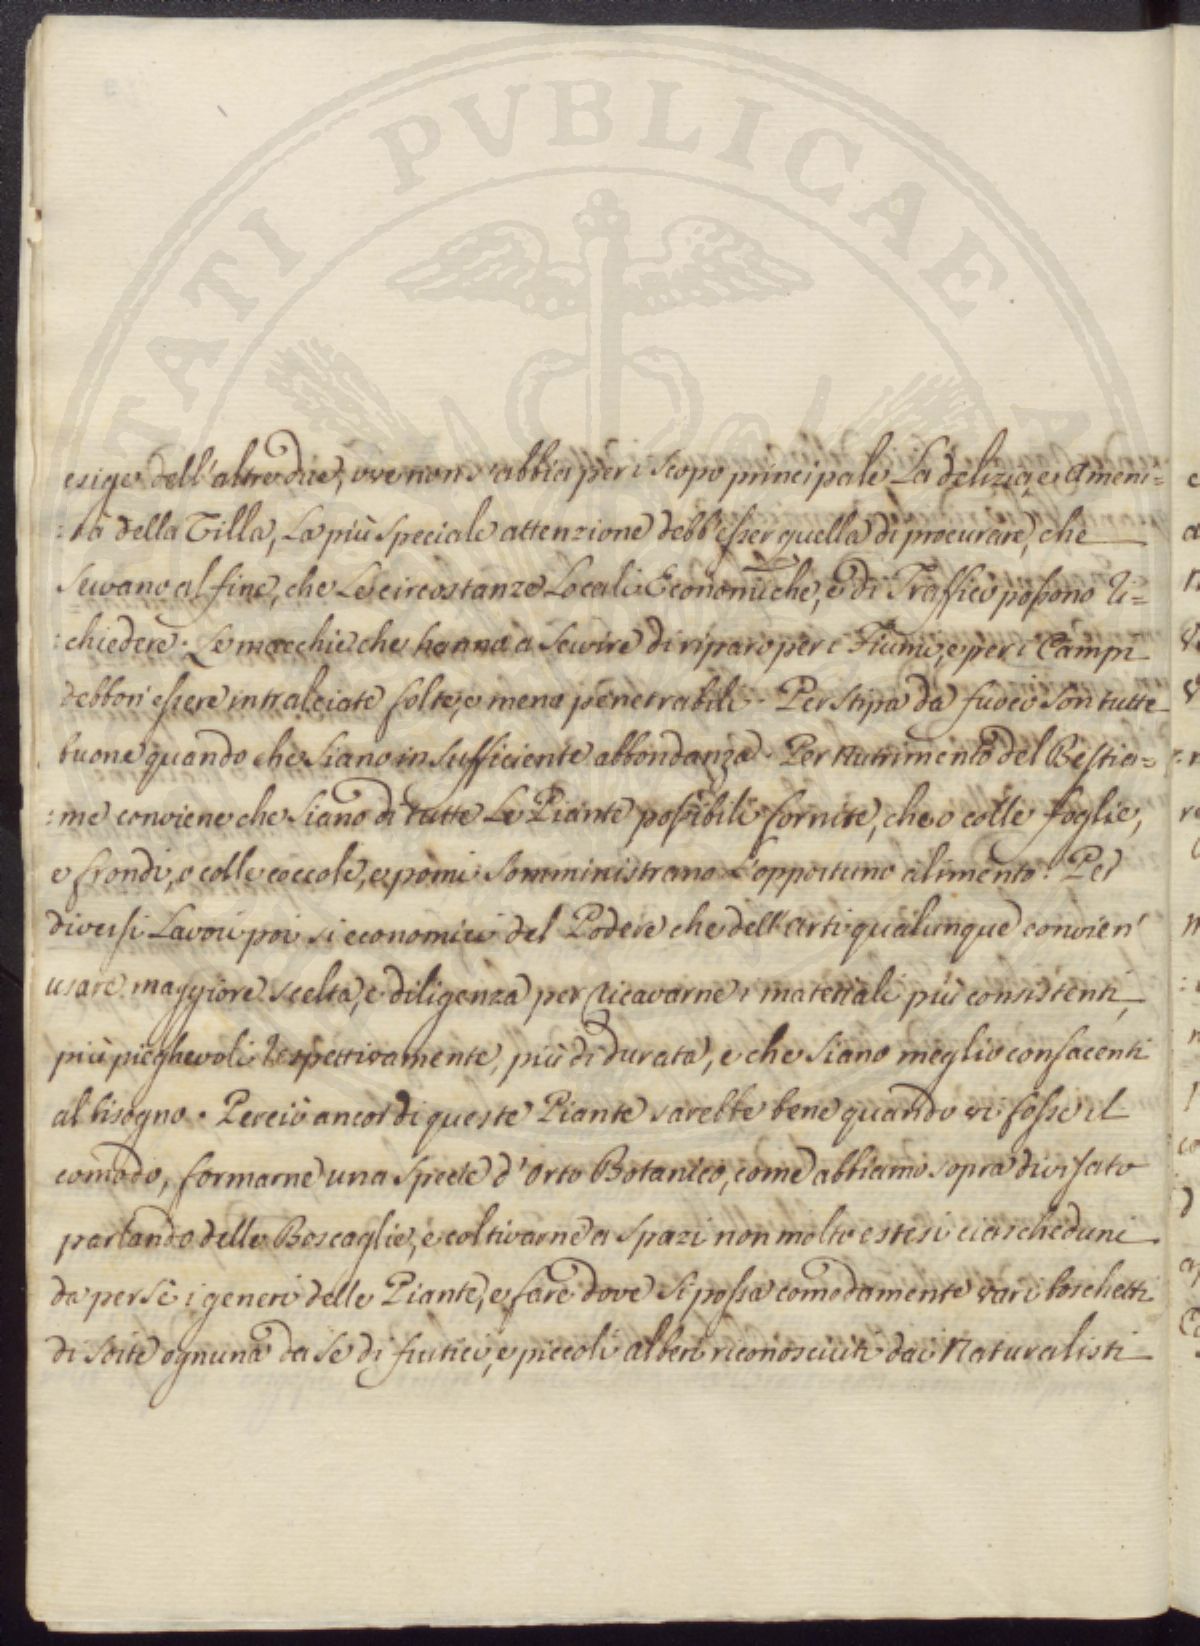 PVBLICAE
esige dell'altre due, ove non s'abbia per iscopo principale La delizia, e Ameni=
:tà della Villa, La più speciale attenzione debb'esser quella di procurare, che
servano al fine, che Le circostanze Locali Economiche, e di Traffico possono Ri=
:chiedere. Le macchie che hanno a servire di riparo per i Fiumi, e per i Campi
debbon'essere intralciate folte, e meno penetrabili. Per stipa da fuoco son tutte
buone quando che siano in sufficiente abbondanza. Per Nutrimento del Bestia=
:me conviene che siano di tutte Le Piante possibili fornite, che o colle foglie,
e frondi, o colle coccole, e pomi somministrano L'opportuno alimento. Per
diversi Lavori poi si economici del Podere che dell'Arti qualunque convien'
usare maggiore scelta, e diligenza per Ricavarne i materiali più consistenti,
più pieghevoli Respettivamente, più di durata, e che siano meglio confacenti
al bisogno. Perciò ancor di queste Piante sarebbe bene quando vi fosse il
comodo, formarne una specie d'Orto Botanico, come abbiamo sopra divisato
parlando delle Boscaglie, e coltivarne a spazi non molto estesi ciascheduni
da per se i generi delle Piante, e fare dove si possa comodamente vari boschetti
di Sorte ognuna da se di frutici, e piccoli alberi riconosciuti dai Naturalisti